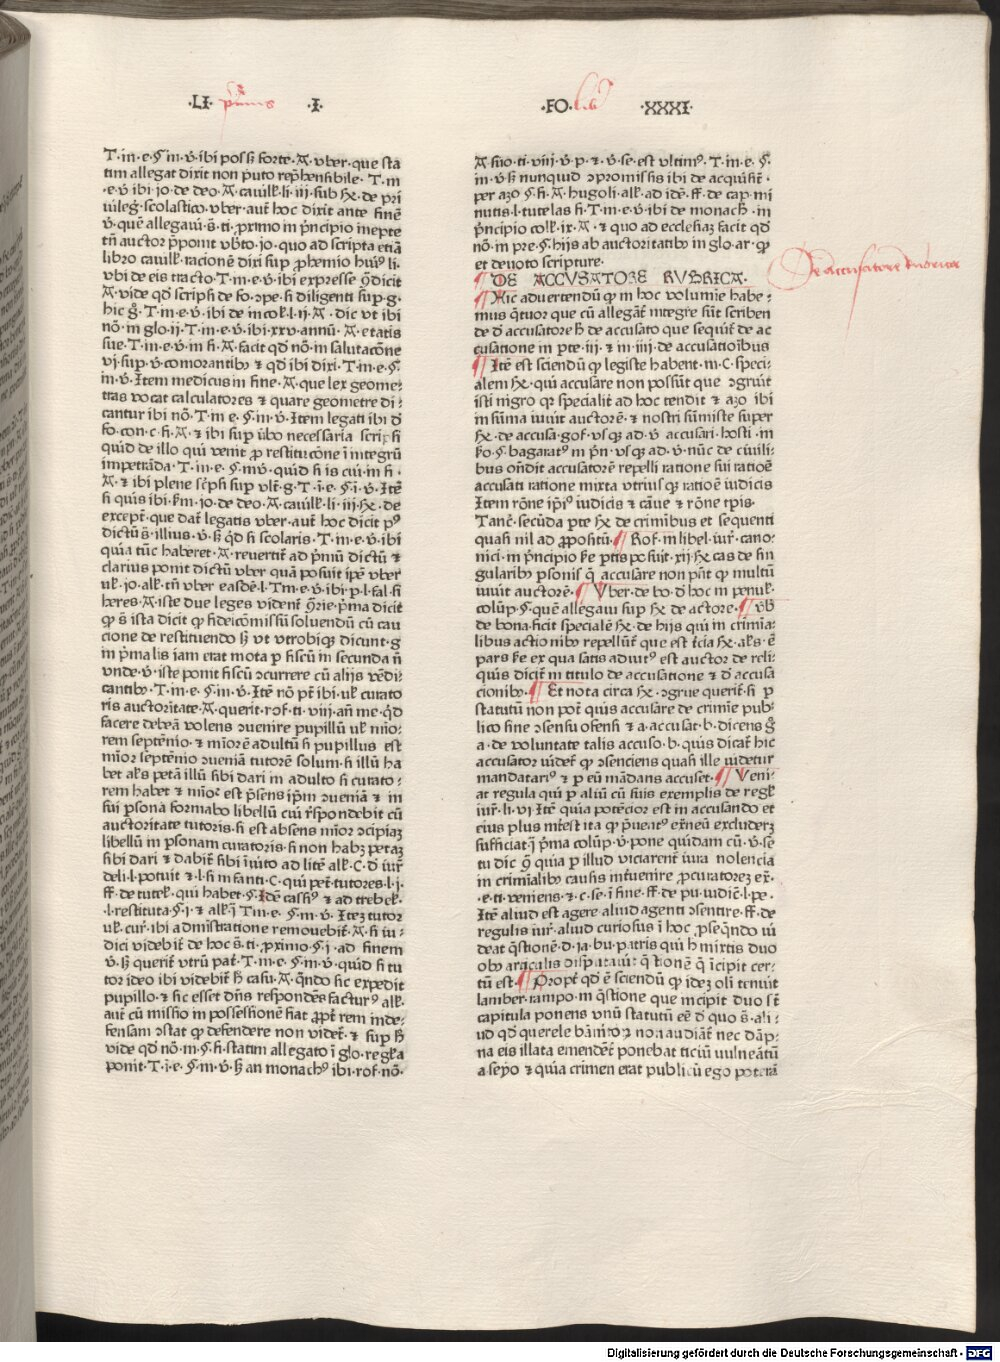 ·LI· primus ·I·
·FO· ·XXXI·
T·in·e·§·in·v̄·ibi poss3 forte·A·vber·que sta
tim allegat dixit non puto rep̄hensibile·T·in
·e·v̄ ibi jo·de deo·A·cauill'·li·iii·sub
vileg̉·scolastico·vber·aut̄ hoc dixit ante finē
v̄·quē allegaui·s̄·ti·ꝓximo in p̄ncipio inepte
tn̄ auctor p̄ponit vb̄to·jo·quo ad scripta etiā
libro cauill'·racionē dixi sup ꝓhemio huiꝰ li·
vbi de eis tracto·T·in·e·v̄·ibi expresse q̄dicit
A·vide qd̄ scripsi de fo·ꝯpe·si diligenti sup·g·
hic g̊·T·in·e·v̄·ibi de incol·l·ii·A·dic vt ibi
nō·in glo·ij·T·in·e·v̄·ibi·xxv·annū·A·etatis
sue·T·in·e·v̄·in fi·A·facit qd̄ nō·in salutacōne
vj·sup·v̄·comorantibꝰ & qd̄ ibi dixi·T·in·e·§·
in·v̄·Item medicus in fine·A·que lex geome⸗
tras vocat calculatores & quare geometre di⸗
cantur ibi nō·T·in·e·§·in·v̄·Item legati ibi d̄
fo·con·c·fi·A·& ibi sup v̄bo necessaria scripsi
quid de illo qui venit ꝓ restitucōne ī integrū
impetrāda·T·in·e·§·inv̄·quid si is cui in fi·
A·& ibi plene sc̄psi sup vlt̄·g·T·i·e·§·i·v̄·Itē
si quis ibi·k̄m·jo·de deo·A·cauill'·li·iii·
except̄·que dat̄ legatis vber·aut̄ hoc dicit pꝰ
dictū s̄·illius·v̄·s3 q̉d si scolaris·T·in·e·v̄·ibi
quia tūc haberet·A·reuertit̄ ad p̄mū dictū &
clarius ponit dictū vber quā posuit ip̄e vber
ul'·jo·alk̄·tn̄ vber easdē·l·Tm·e·v̄·ibi·p·l·fal·si
heres·A·iste due leges vident̄ ꝯrie·p̄ma dicit
ꝙ s̄ ista dicit ꝙ fideicōmissū soluendū cū cau
cione de restituendo s3 vt vtrobiqꝫ dicunt·g
in p̄malis iam erat mota p fiscū in secunda n̄
vnde·v̄·iste ponit fiscū ꝯcurrere cū alijs v̄edi⸗
cantibꝰ·T·in·e·§·in·v̄·Itē nō pt̄ ibi·ul' curato
ris auctoritate·A·querit·rof·ti·viij·an̄ me·q̉d
facere debeā volens ꝯuenire pupillū ul' mīo⸗
rem septēnio·& mīorē adultū si pupillus est
mīor septēnio ꝯueniā tutorē solum·si illū ha
bet al's petā illū sibi dari in adulto si curato⸗
rem habet & mīor est p̄sens ip̄m ꝯueniā & in
sui p̄sona formabo libellū cui r̄spondebit cū
auctoritate tutoris·si est absens mīor ꝯcipiaꝫ
libellū in p̄sonam curatoris·si non habꝫ petaꝫ
sibi dari & dabit̄ sibi īuito ad litē alk̄·C·d̄ iur̄
deli·l·potuit & ·l·si infanti·C·qui pet̄·tutores·l·j·
ff·de tutel'·qui habet·§·Idē casiꝰ & ad trebel'·
·l·restituta·§·i·& alk̄·ī Tm·e·§·in·v̄·Iteꝫ tutor
ul'·cur̄·ibi admīstratione remouebit̄·A·si iu⸗
dici videbit̄ de hoc s̄·ti·ꝓximo·§·i·ad finem
v̄·s3 querit̄ vtrū pat̄·T·in·e·§·in·v̄·quid si tu
tor ideo ibi videbit̄ h̄ casu·A·qn̄do sic expedit
pupillo·& sic esset dn̄s respondēs facturꝰ alk̄·
aut̄ cū missio in possessionē fiat ꝓpt̄ rem inde⸗
fensam ꝯstat ꝙ defendere non videt̄·& sup h̄
vide qd̄ nō·in·§·si·statim allegato ī glo·regl'a
ponit·T·i·e·§·in·v̄·s3 an monachꝰ ibi·rof·nō·
A suo·ti·viii·v̄·p·& ·v̄·se·est vltimꝰ·T·in·e·§·
in·v̄·s3 nunquid ꝯpromissis ibi de acquisit̄·
per azo·§·fi·A·hugoli·alk̄·ad idē·ff·de cap·mi
nutis·l·tutelas fi·T·in·e·v̄·ibi de monach̄·in
p̄ncipio colk̄·ix·A·& quo ad ecclesiaꝫ facit qd̄
nō·in pre·§·hijs ab auctoritatibꝰ in glo·ar·ꝙ
et deuoto scripture·
¶ DE ACCVSATORE RVBRICA·
De accusatore Rubrica
¶ Hic aduertendū ꝙ in hoc volumie habe⸗
mus q̄tuor que cū allegāt̄ integre sūt scriben
de d̄ accusatore h̄ de accusato que sequit̄ de ac
cusatione in p̄te·iii·& in·iiii·de accusatioībus
¶ Itē est sciendū ꝙ legiste habent·in·C·speci⸗
alem ·qui accusare non possūt que ꝯgruit
isti nigro qꝛ specialit̄ ad hoc tendit & azo ibi
in sūma iuuit auctorē·& nostri sūmiste super
 de accusa·gof·vsqꝫ ad·v̄ accusari·hosti·in
 §·bagaratꝰ in p̄n·vsqꝫ ad·v̄·nūc de ciuili⸗
bus on̄dit accusatorē repelli ratione sui ratioē
accusati ratione mixta vtriusqꝫ ratioē iudicis
Item rōne ip̄iꝰ iudicis & cāue & rōne tp̄is·
Tanc̄·secūda p̄te de crimībus et sequenti
quasi nil ad ꝓpositū·¶ Rof·in libel·iur̄·cano⸗
nici·in p̄ncipio ptis posuit·xij· cas de sin
gularibꝰ p̄sonis q̄ accusare non pn̄t ꝙ multū
iuuit auctorē·¶ Vber·de bo·d̄ hoc in penul'·
colūp·§·quē allegaui sup de actore·¶ vb̄
de bona·ficit specialē de hijs qui in crimīa⸗
libus actionibꝰ repellūt̄ que est t̄cia ·al's·ē
pars ex qua satis adiutꝰ est auctor de reli⸗
quis dicit̄ in titulo de accusatione & d̄ accusa
cionibꝰ·¶ Et nota circa ·ꝯgrue querit̄·si p
statutū non pot̄ quis accusare de crimīe pub⸗
lico sine ꝯsensu offensi & ·a·accusat·b·dicens g̊
a·de voluntate talis accuso·b·quis dicat̄ hic
accusator uidet̄ ꝙ ꝯsenciens quasi ille uidetur
mandatariꝰ & p eū mādans accuset·¶ Veni⸗
at regula qui p aliū cū suis exemplis de regl'
iur̄·li·vi·Itē quia potēcior est in accusando et
eius plus intest ita ꝙ p̄ueatꝰ ext̄neū excluderꝫ
sufficiat·ī p̄ma colūp·v̄·pone quidam cū·v̄·se
tu dic ꝙ quia p illud viciarent̄ iura nolencia
in crimīalibꝰ causis int̄uenire ꝓcuratoreꝫ ex̄·
·e·ti·veniens·& ·c·se·ī fine·ff·de pu·iudic̄·l·pe·
Itē aliud est agere aliud agenti ꝯsentire·ff·de
regulis iur̄·aliud curiosus ī hoc ꝓseq̄ndo ui
deat q̄stionē·d·ja·bu·patris qui h̄ mixtis duo
obꝰ articulis disputauit q̄stionē q̄ īcipit cer⸗
tū est·¶ Propt̄ qd̄ ē sciendū ꝙ ideꝫ oli tenuit
lamber·rampo·in q̄stione que incipit duo st̄
capitula ponens vnū statutū eē d̄ quo s̄·ali⸗
ud qd̄ querele bānitoꝝ non audiāt̄ nec dāp⸗
na eis illata emendēt̄ ponebat ticiū vulneatū
a seyo & quia crimen erat publicū ego poterā
Digitalisierung gefördert durch die Deutsche Forschungsgemeinschaft - DFG